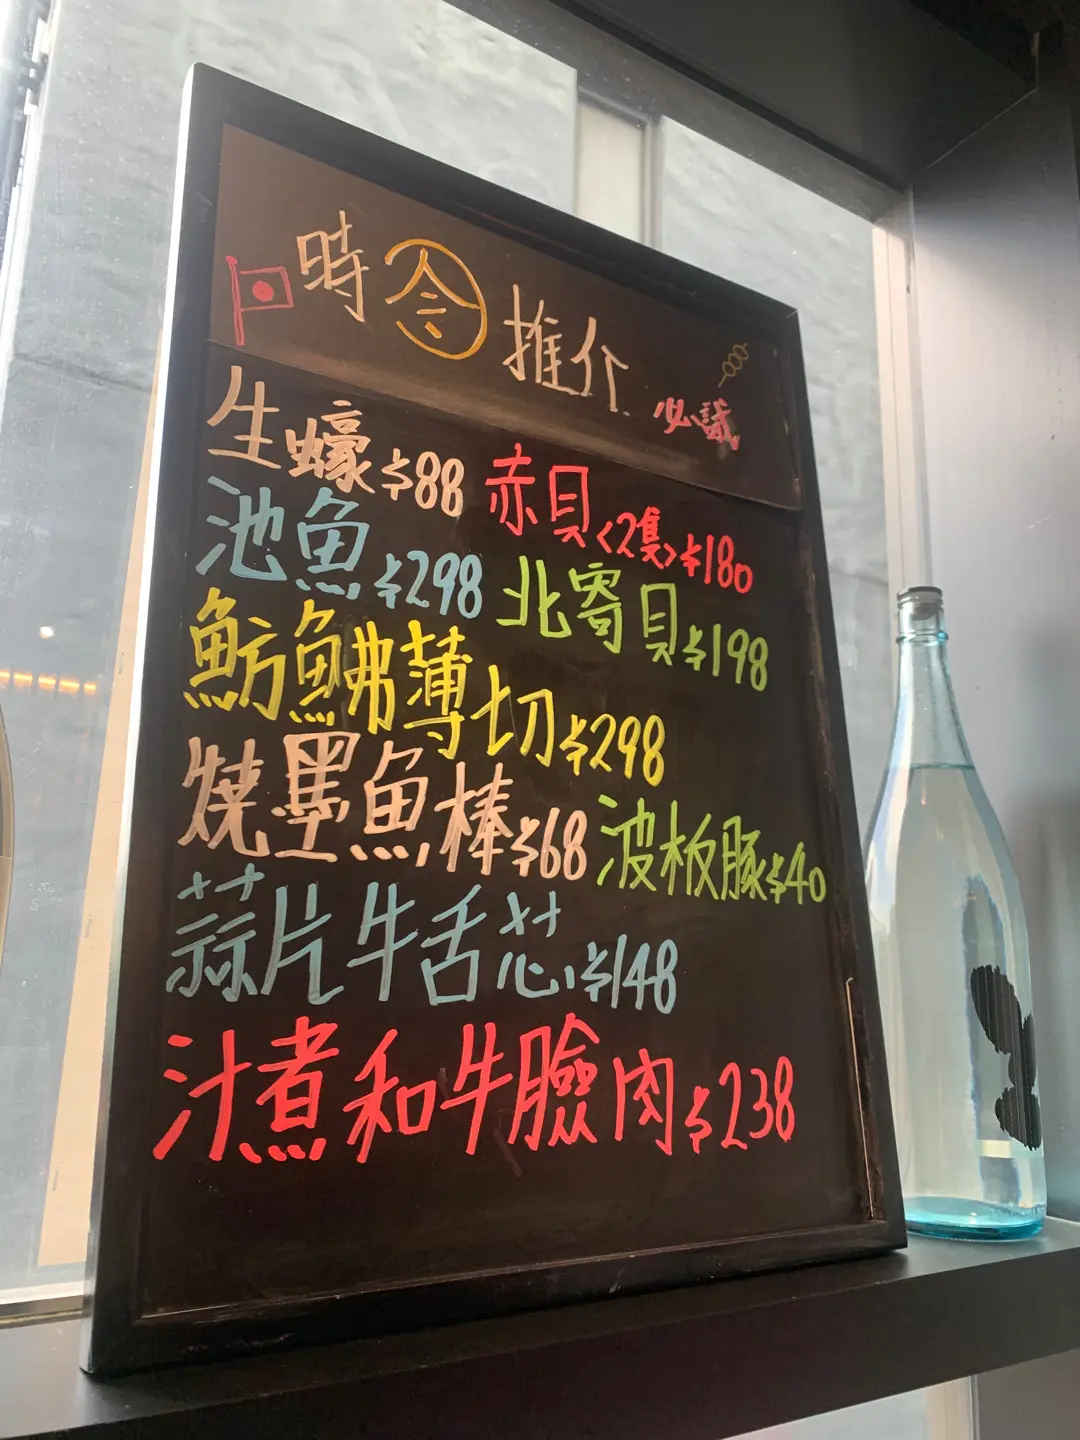 時令推介 必試
生蠔 $88 赤貝<2隻> $180
池魚 $298 北寄貝 $198
魴鮄薄切 $298
燒墨魚棒 $68 波板豚 $40
蒜片牛舌芯 $148
汁煮和牛臉肉 $238